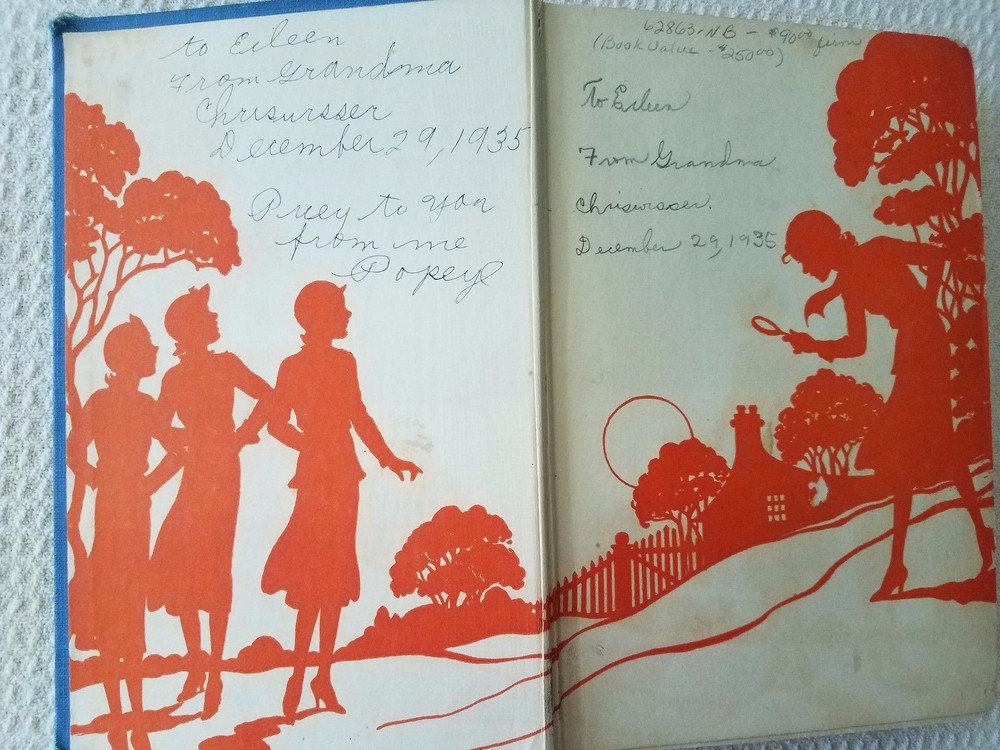 to Eileen
From Grandma
Chrisurser
December 29, 1935
Prey to you
from me
Popeye
62863-NB - $90.00 firm
(Book Value - $250.00)
To Eileen
From Grandma
Chrisursser.
December 29, 1935